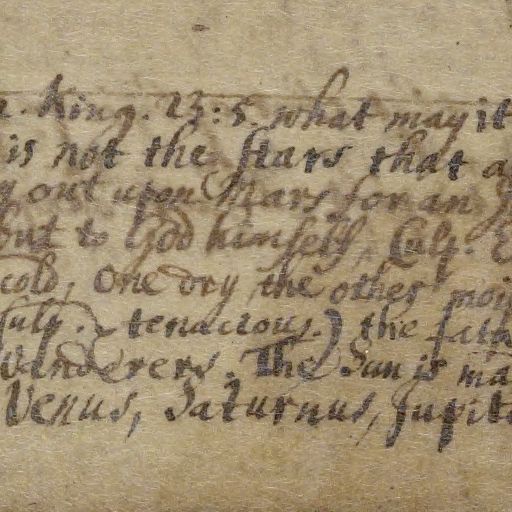 2. King. 23: 5. what may it
is not the stars that
out upon Mars for an
but to God himself, Culp.
cold, one dry, the other mois
Culp. tenacious.) the fata
Wanderers. The Sun is ma
Venus, Saturnus, Jupit